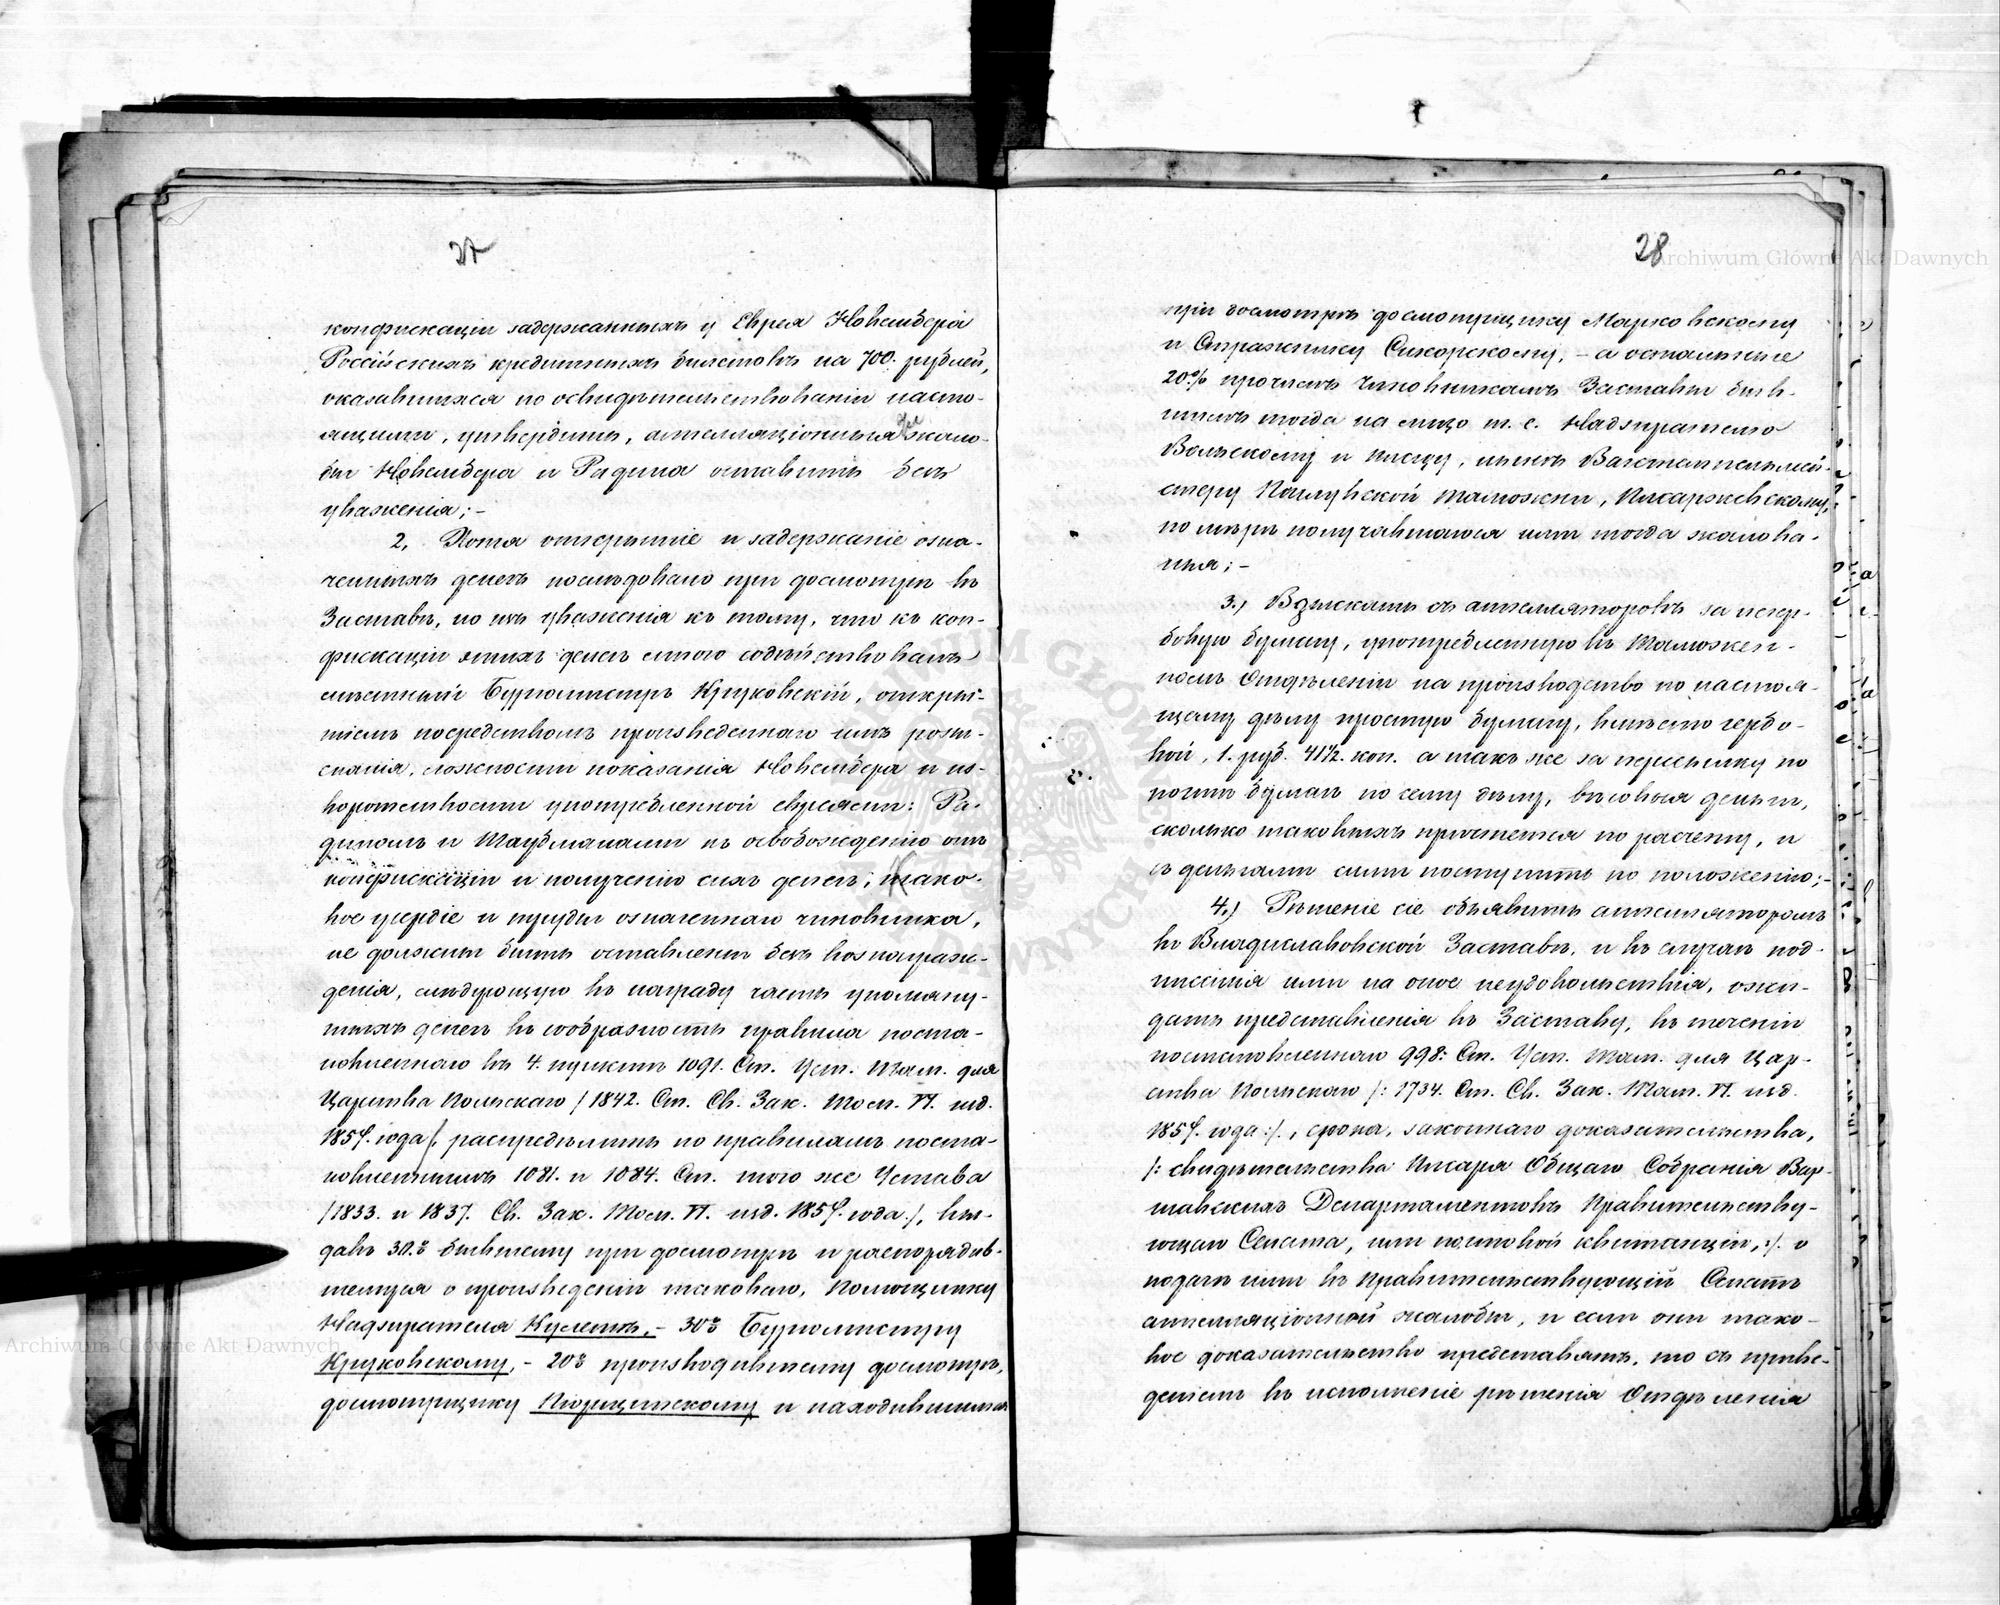 27
конфискаціи задержанныхъ у Еврея Новембера
Россійскихъ кредитныхъ билетовъ на 700. рублей,
оказавшихся по освидѣтельствованіи насто-
ящими, утвердить, аппелляціонныя жало-
бы Новембера и Радина оставить безъ
уваженія; -
2, Хотя открытіе и задержаніе озна-
ченныхъ денегъ послѣдовало при досмотрѣ въ
Заставѣ, но изъ уваженія къ тому, что къ кон-
фискаціи этихъ денегъ много содѣйствовалъ
мѣстный Бургомистръ Круковскій, откры-
тіемъ посредствомъ произведеннаго имъ розы-
сканія, ложности показанія Новембера и из-
воротливости употребленной евреями: Ра-
диномъ и Таубманами къ освобожденію отъ
конфискаціи и полученію сихъ денегъ; тако-
вое усердіе и труды означеннаго чиновника,
не должны быть оставлены безъ вознаграж-
денія, слѣдующую въ награду часть упомяну-
тыхъ денегъ въ сообразность правила поста-
новленнаго въ 4. пунктѣ 1091. Ст. Уст. Там. для
Царства Польскаго /1842. Ст. Св. Зак. Том. VI. изд.
1857. года/, распредѣлить по правиламъ поста-
новленнымъ 1081. и 1084. Ст. того же Устава
/1833. и 1837. Св. Зак. Том. VI. изд. 1857. года./, вы-
давъ 30.% бывшему при досмотрѣ и распорядив-
шемуся о произведеніи таковаго, Помощнику
Надзирателя Кулешѣ, - 30% Бургомистру
Круковскому, - 20% производившему досмотръ,
досмотрщику и находившимся
28
при досмотрѣ досмотрщику Марковскому
и Стражнику Сикорскому, - а остальные
20% прочимъ чиновникамъ Заставы быв-
шимъ тогда на лицо т. е. Надзирателю
Вольскому и писцу, нынѣ Вагстемпельмей-
стеру таможни, Пикаржевскому,
по мѣрѣ получавшагося ими тогда жалова-
нья; -
3.) Взыскать съ аппелляторовъ за гер-
бовую бумагу, употребленную въ Таможен-
номъ Отдѣленіи на производство по настоя-
щему дѣлу простую бумагу, вмѣсто гербо-
вой, 1. руб. 41½. коп. а такъ же за пересылку по
почтѣ бумагъ по сему дѣлу, вѣсовыя деньги,
сколько таковыхъ причтется по расчету, и
съ деньгами сими поступить по положенію; -
4.) Рѣшеніе сіе объявить аппелляторамъ
въ Владиславовской Заставѣ, и въ случаѣ под-
писанія ими на оное неудовольствія, ожи-
дать представленія въ Заставу, въ теченіи
постановленнаго 998: Ст. Уст. Там. для Цар-
ства Польскаго /: 1734. Ст. Св. Зак. Том. VI. изд.
1857. года :/., срока, законнаго доказательства,
/: свидѣтельства Писаря Общаго Собранія Вар-
шавскихъ Департаментовъ Правительству-
ющаго Сената, или почтовой квитанціи, :/. о
подачѣ ими въ Правительствующій Сенатъ
аппелляціонной жалобы, и если они тако-
вое доказательство представятъ, то съ приве-
деніемъ въ исполненіе рѣшенія Отдѣленія
Archiwum Główne Akt Dawnych
Archiwum Główne Akt Dawnych